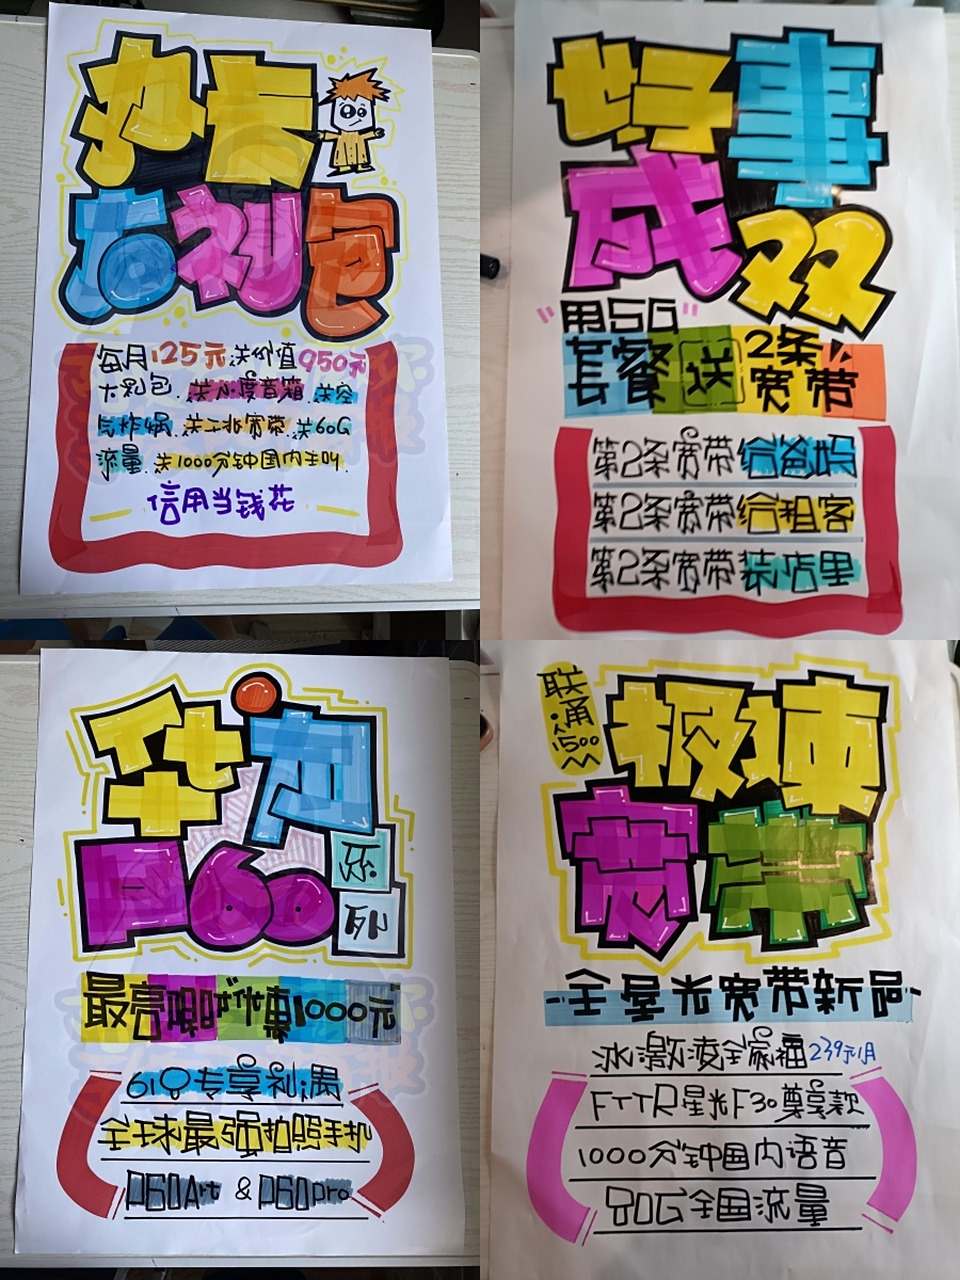 办卡
大礼包
每月125元送价值950元
大礼包 送小度音箱 送空
气炸锅 送一兆宽带 送60G
流量 送1000分钟国内主叫
信用当钱花
好事
成双
"用5G"
套餐送2条宽带
第2条宽带给爸妈
第2条宽带给租客
第2条宽带装店里
华为
P60
系列
最高直降1000元
618专享礼遇
全球最强拍照手机
P60Art & P60pro
联通
1500M
极速
宽带
-全屋光宽带新品-
冰激凌全家福239元/月
FTTR星光F30尊享款
1000分钟国内语音
80G全国流量